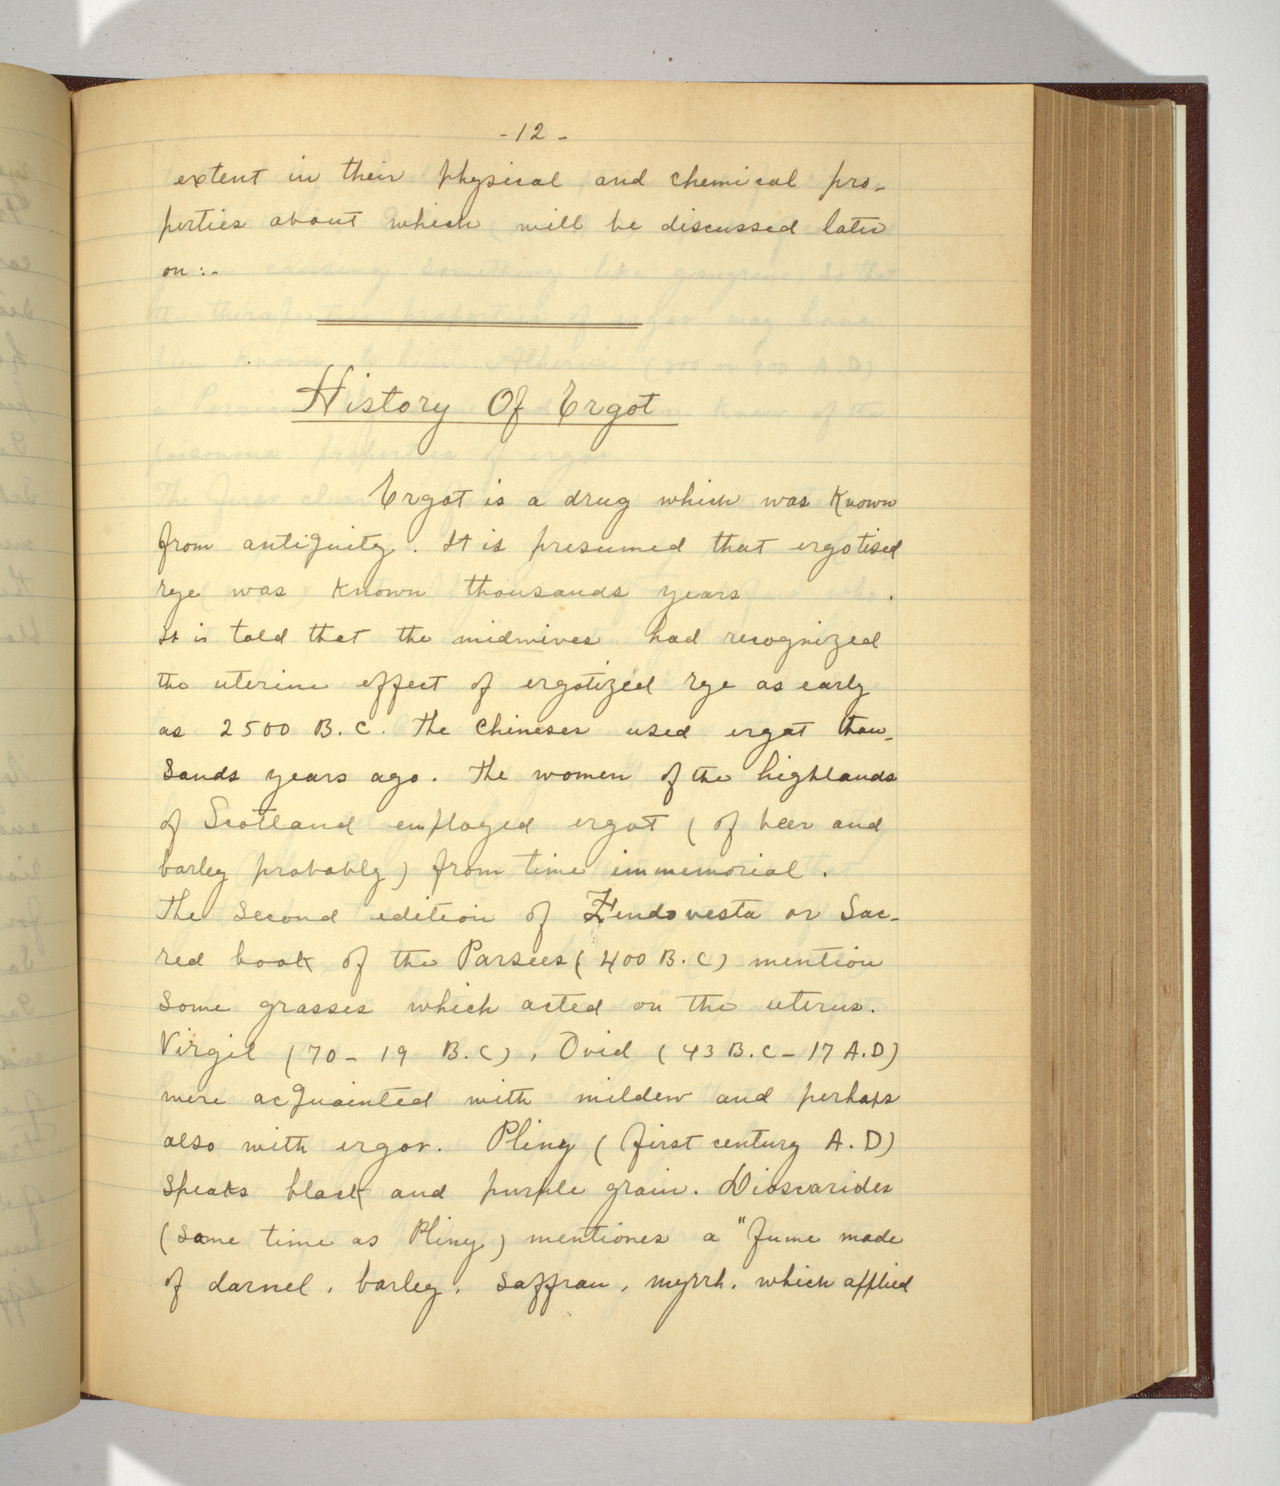 -12-
extent in their physical and chemical pro-
perties about which will be discussed later
on:-
History Of Ergot
Ergot is a drug which was known
from antiquity. It is presumed that ergotised
rye was known thousands years .
It is told that the midwives had recognized
the uterine effect of ergotized rye as early
as 2500 B.C. The Chineses used ergot thou-
sands years ago. The women of the highlands
of Scotland employed ergot (of beer and
barley probably) from time immemorial.
The second edition of Zendovesta or Sac-
red book of the Parsees (400 B.C) mention
some grasses which acted on the uterus.
Virgil (70-19 B.C), Ovid (43 B.C-17 A.D)
were acquainted with mildew and perhaps
also with ergot. Pliny (first century A.D)
speaks black and purple grain. Dioscorides
(same time as Pliny) mentiones a "fume made
of darnel, barley, saffran, myrrh, which applied